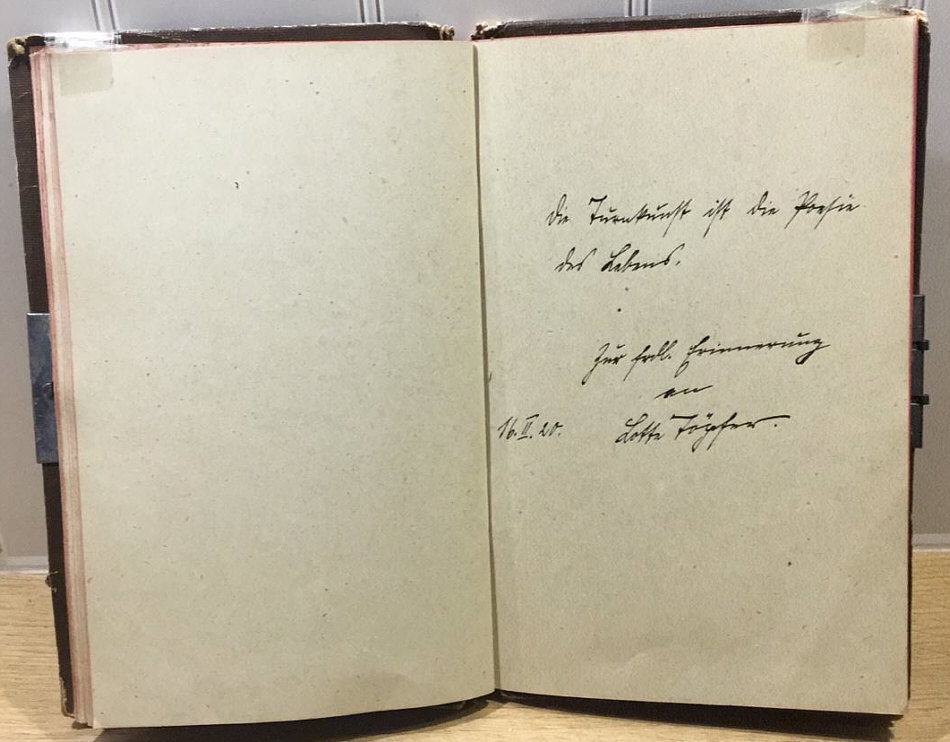 Die Turnkunst ist die Poesie
des Lebens.
Zur frdl. Erinnerung
an
16.II.20. Lotte Töpfer.